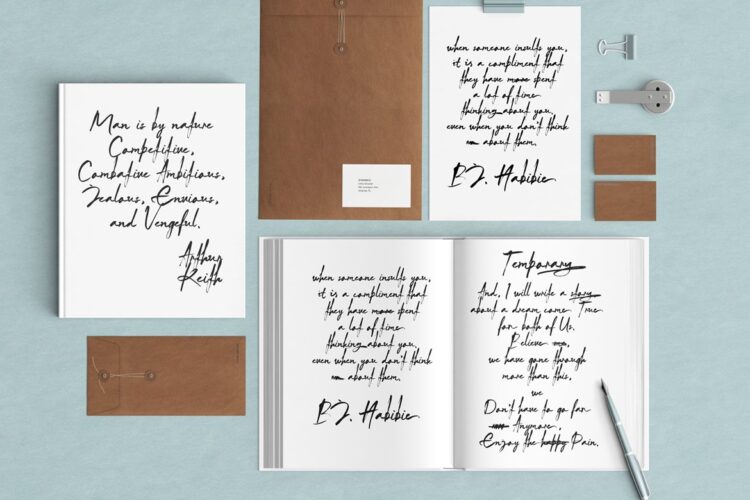 Man is by nature
Competitive,
Combative Ambitious,
Jealous, Envious,
and Vengeful.
Arthur
Keith
when someone insults you,
it is a compliment that
they have more spent
a lot of time
thinking about you,
even when you don't think
about them.
B.J. Habibie
when someone insults you,
it is a compliment that
they have more spent
a lot of time
thinking about you,
even when you don't think
about them.
B.J. Habibie
Temporary
And, I will write a story
about a dream come True
for both of Us.
Believe me,
we have gone through
more than this,
we
Don't have to go far
Anymore,
Enjoy the happy Pain.